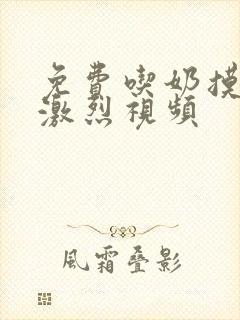 免費喫奶摸
激烈視頻
風霜疊影